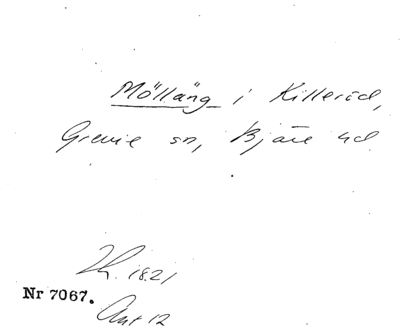 Mölläng i Killeröd,
Grevie sn, Bjäre hd
1821
Nr 7067.
Akt 12